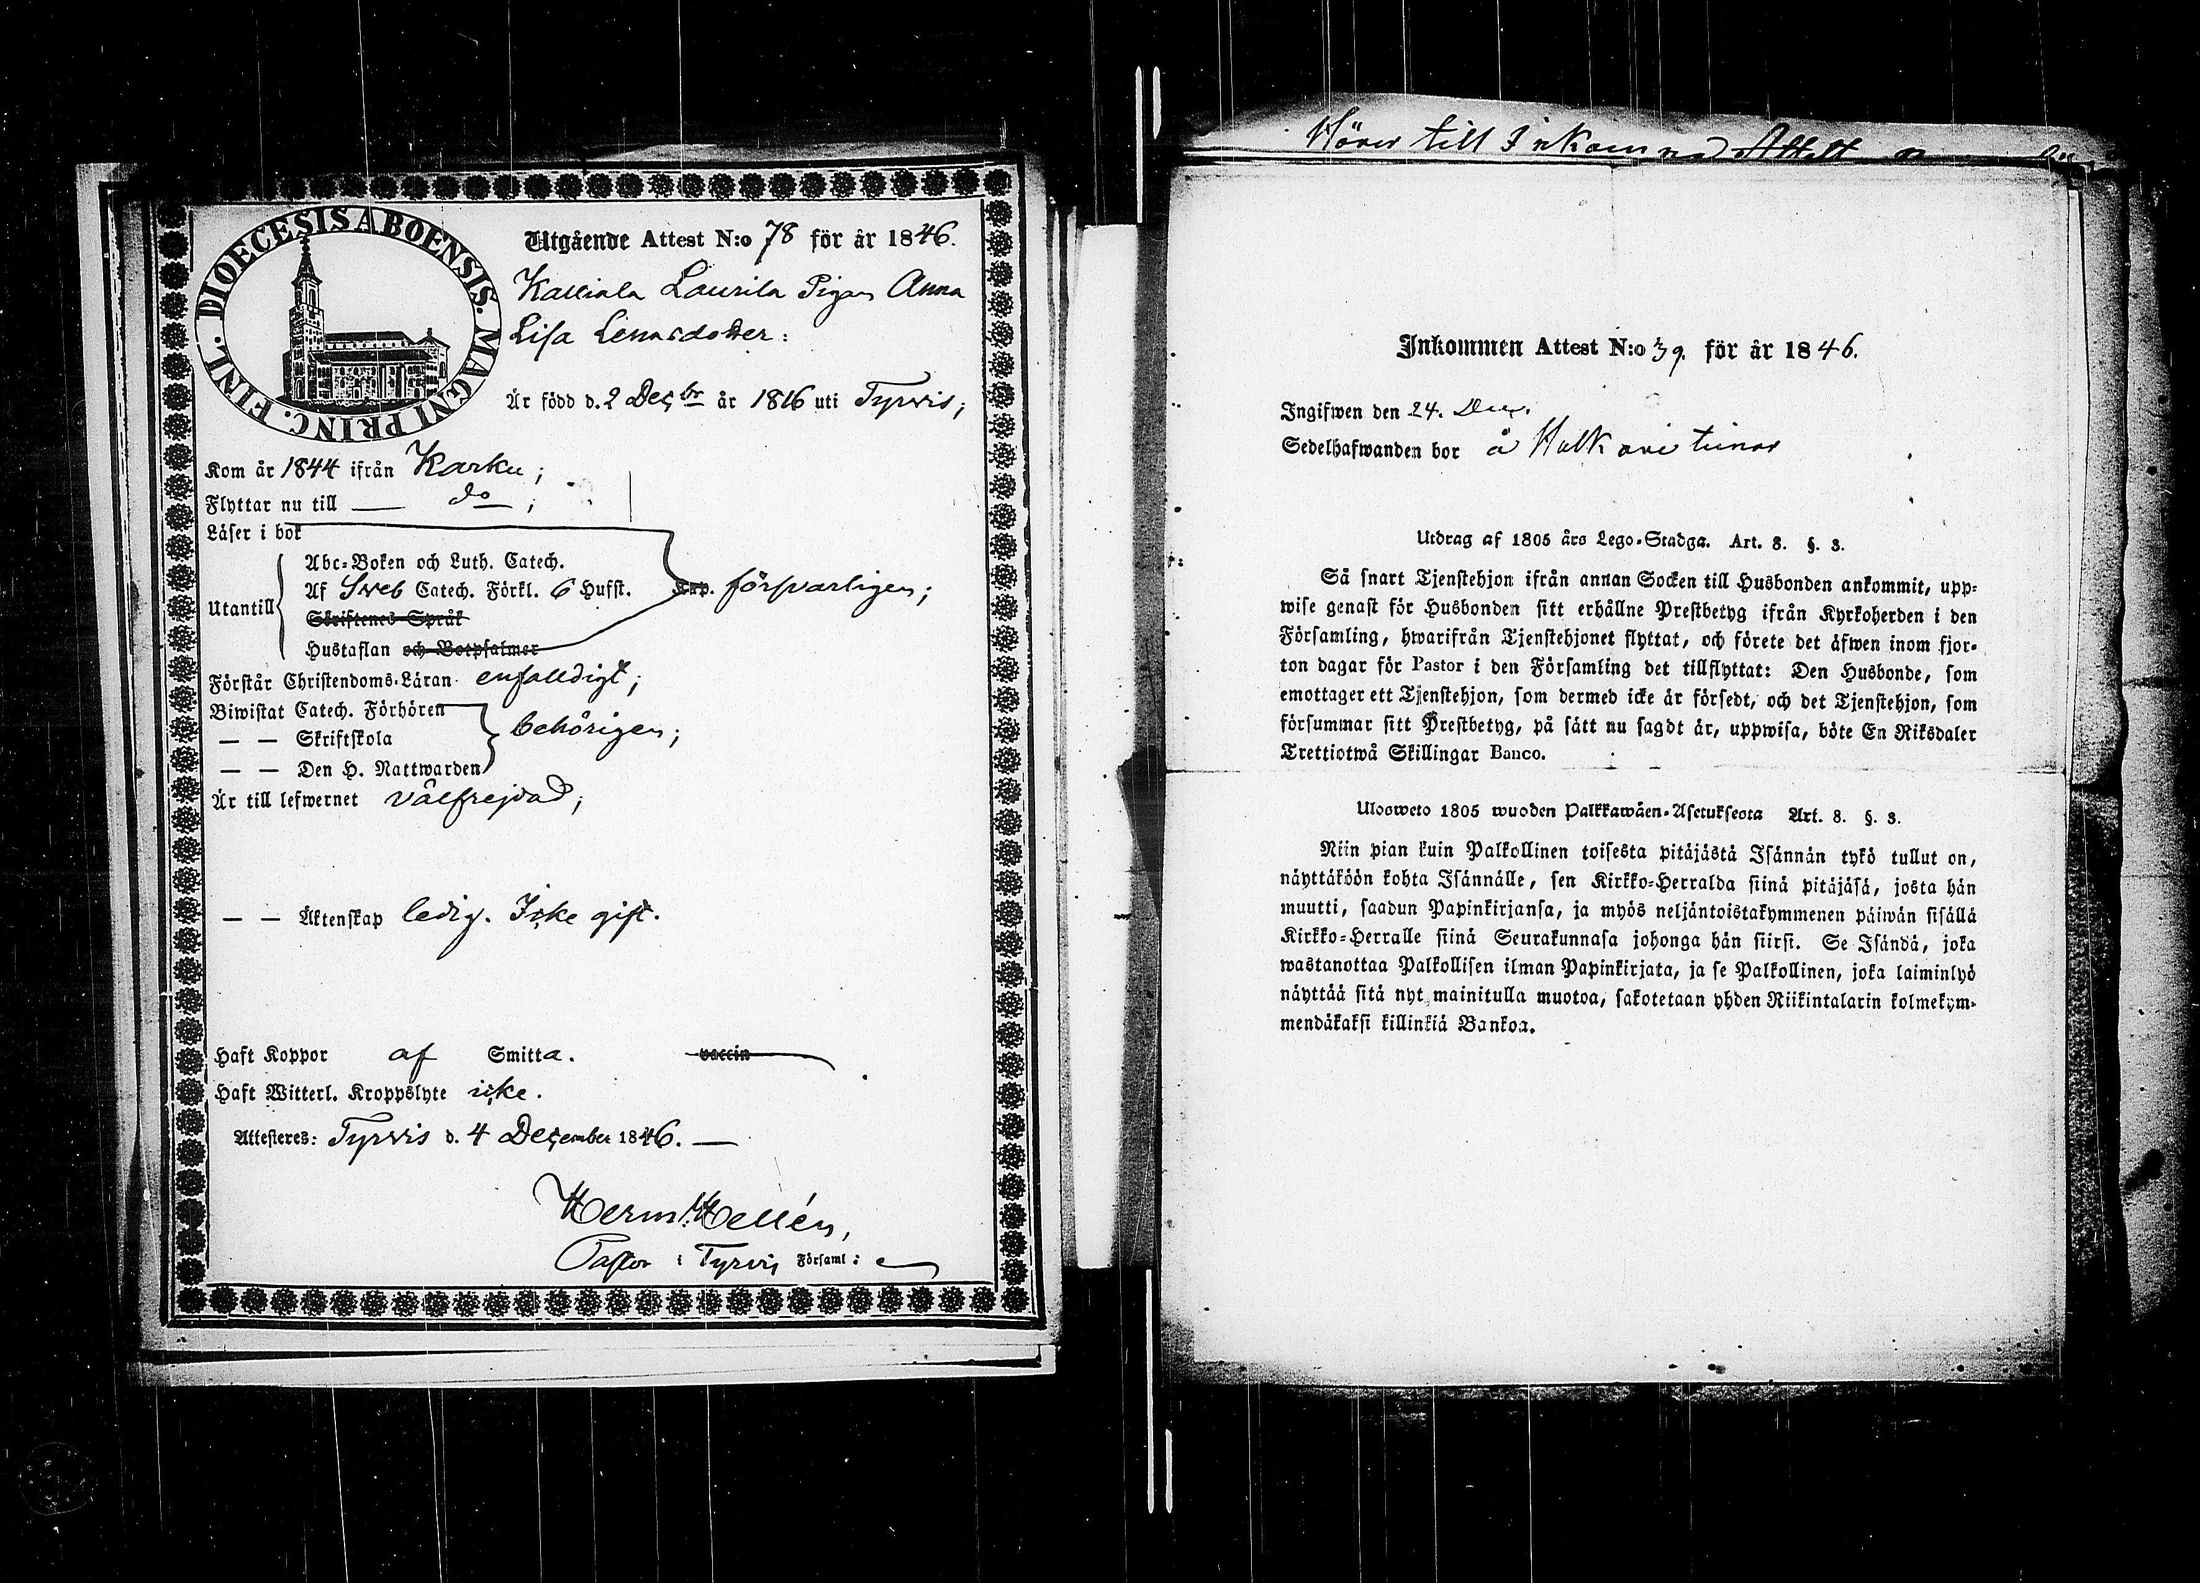 DIOECESIS ABOENSIS. MAGNI PRINC. FINL.
Utgående Attest N:o 78 för år 1846.
Kalliala Laurila Pigan Anna
Lisa Lenasdotter:
Är född d. 2 Decbr år 1816 uti Tyrvis;
Kom år 1844 ifrån Karku;
Flyttar nu till — do —;
Läser i bok
Abc-Boken och Luth. Catech.
Utantill Af Sveb Catech. Förkl. 6 Hufst. försvarligen;
Skriftenes Språk
Hustaflan och Botpsalmer
Förstår Christendoms-Läran enfalldigt;
Biwistat Catech. Förhören
— — Skriftskola behörigen;
— — Den H. Nattwarden
Är till lefwernet välfrejdad;
— — Äktenskap ledig. Icke gift.
Haft Koppor af Smitta. vaccin
Haft Witterl. Kroppslyte icke.
Attesteres: Tyrvis d. 4 December 1846. —
Herm. Hellén,
Pastor i Tyrvis Församl:
Hörer till Inkomnad Attest
Inkommen Attest N:o 39. för år 1846.
Ingifwen den 24. Dec.
Sedelhafwanden bor å
Utdrag af 1805 års Lego-Stadga. Art. 8. §. 3.
Så snart Tjenstehjon ifrån annan Socken till Husbonden ankommit, upp-
wise genast för Husbonden sitt erhållne Prestbetyg ifrån Kyrkoherden i den
Församling, hwarifrån Tjenstehjonet flyttat, och förete det äfwen inom fjor-
ton dagar för Pastor i den Församling det tillflyttat: Den Husbonde, som
emottager ett Tjenstehjon, som dermed icke är försedt, och det Tjenstehjon, som
försummar sitt Prestbetyg, på sätt nu sagdt är, uppwisa, böte En Riksdaler
Trettiotwå Skillingar Banco.
Ulosweto 1805 wuoden Palkkawäen-Asetuksesta Art. 8. §. 3.
Niin pian kuin Palkollinen toisesta pitäjästä Isännän tykö tullut on,
näyttäköön kohta Isännälle, sen Kirkko-Herralda siinä pitäjäsä, josta hän
muutti, saadun Papinkirjansa, ja myös neljäntoistakymmenen päiwän sisällä
Kirkko-Herralle siinä Seurakunnasa johonga hän siirsi. Se Isändä, joka
wastanottaa Palkollisen ilman Papinkirjata, ja se Palkollinen, joka laiminlyö
näyttää sitä nyt mainitulla muotoa, sakotetaan yhden Riikintalarin kolmekym-
mendäkaksi killinkiä Bankoa.